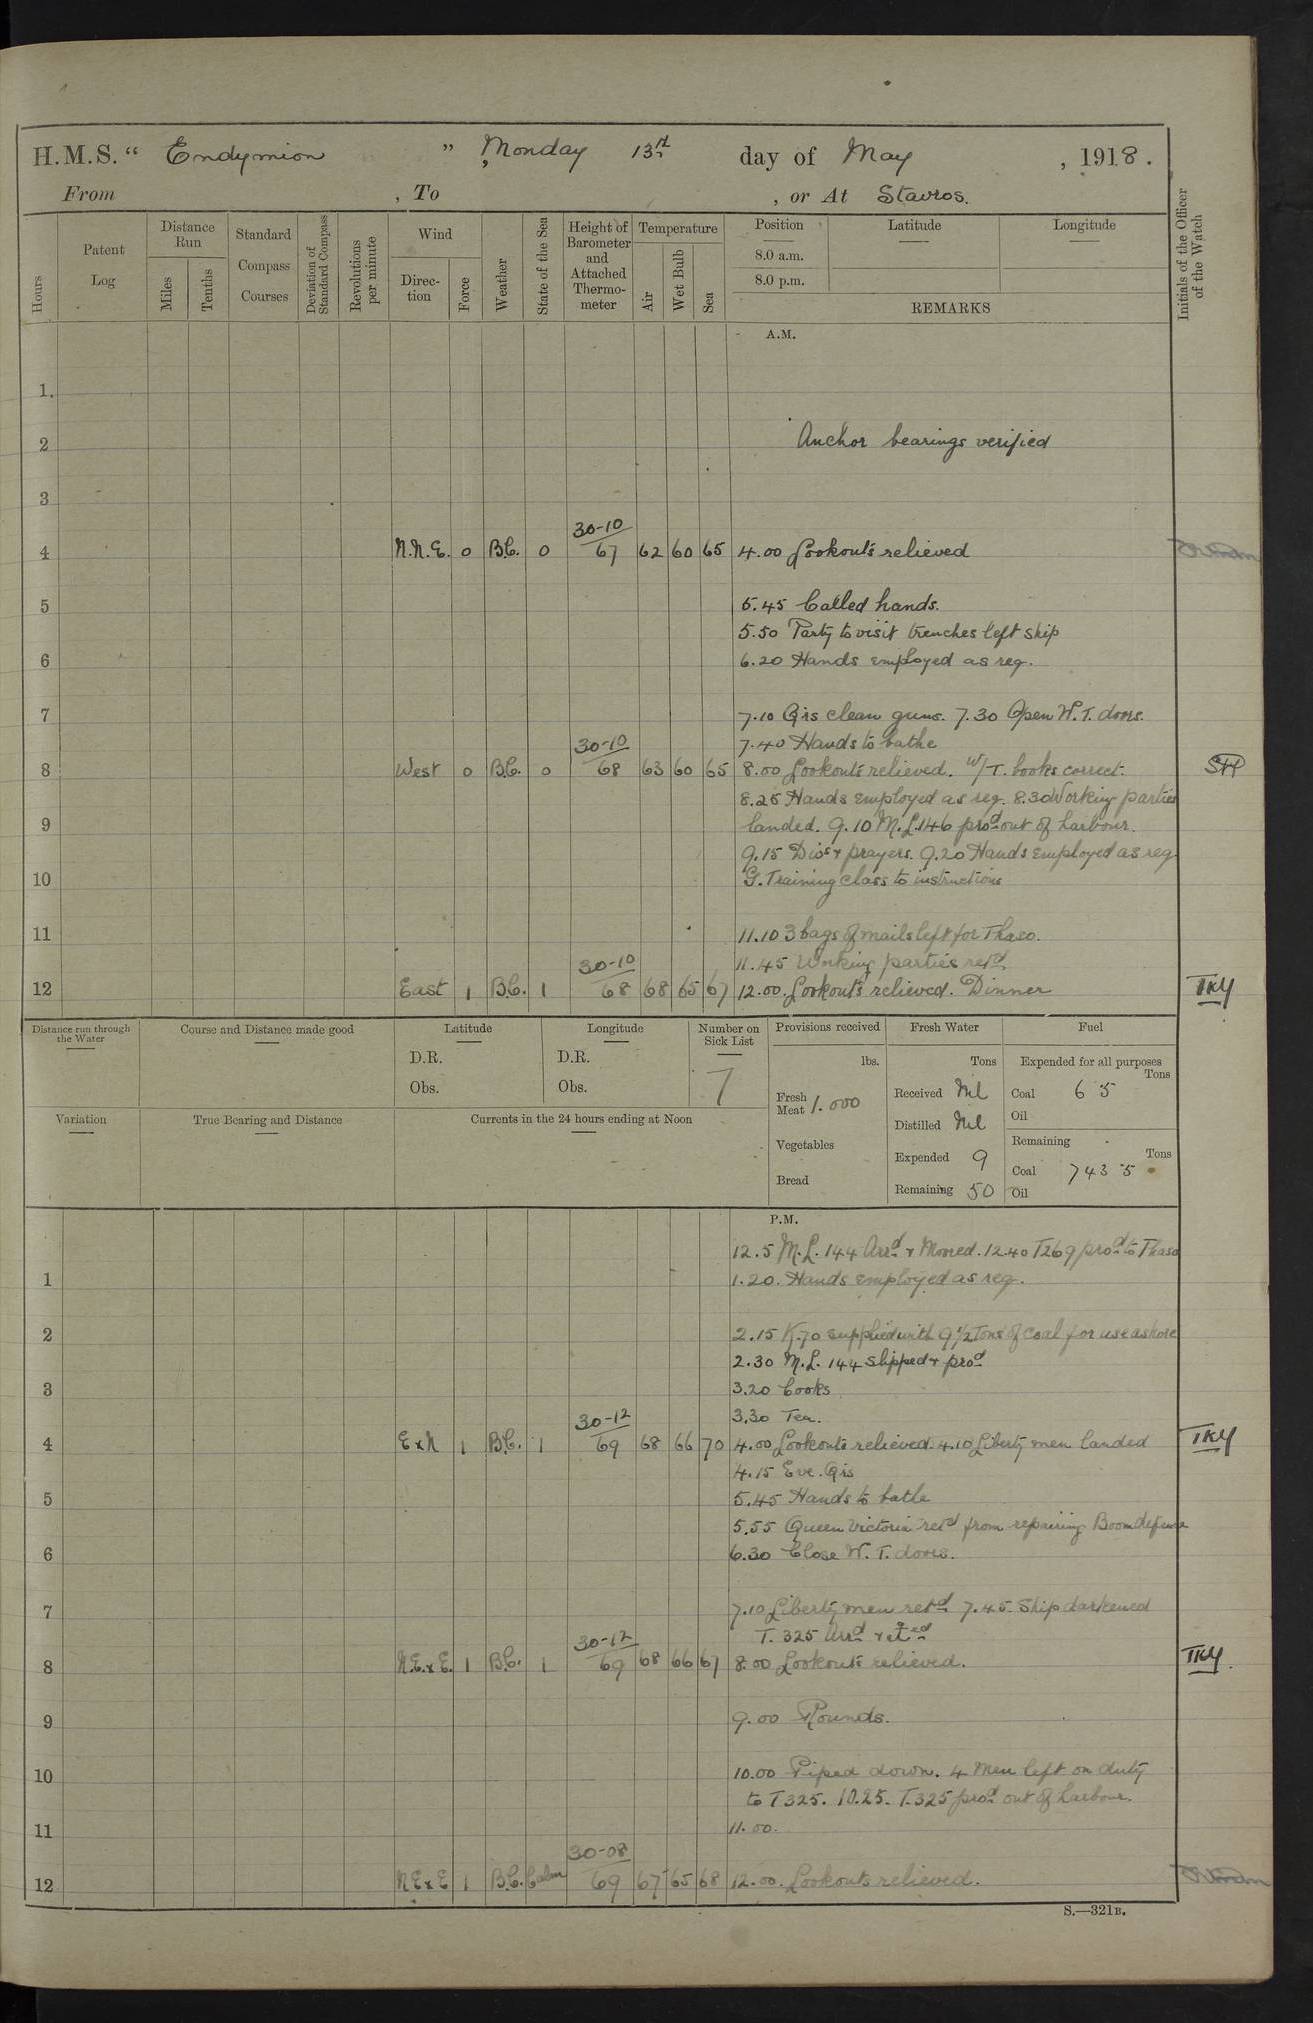 H.M.S. " Endymion " , Monday 13rd day of May , 1918.
From , To , or At Stavros.
Hours Patent Log Distance Run Miles Tenths Standard Compass Courses Deviation of Standard Compass Revolutions per minute Wind Direction Force Weather State of the Sea Height of Barometer and Attached Thermometer Temperature Air Wet Bulb Sea Position 8.0 a.m. 8.0 p.m. Latitude Longitude
REMARKS
Initials of the Officer of the Watch
A.M.
1.
2 Anchor bearings verified
3
30-10
4 N.N.E. 0 B.C. 0 67 62 60 65 4.00 Lookouts relieved
5 5.45 Called hands.
5.50 Party to visit trenches left ship
6 6.20 Hands employed as req.
7 7.10 Qrs clean guns. 7.30 Open W.T. doors.
30-10 7.40 Hands to bathe
8 West 0 B.C. 0 68 63 60 65 8.00 Lookouts relieved. W/T. books correct. SH
8.25 Hands employed as req. 8.30 Working parties
9 landed. 9.10 M.L.146 prod out of harbour.
9.15 Divs & prayers. 9.20 Hands employed as req
10 G. Training class to instructions
11 11.10 3 bags of mails left for Thaso.
30-10 11.45 Working parties retd
12 East 1 B.C. 1 68 68 65 67 12.00. Lookouts relieved. Dinner TKY
Distance run through the Water Course and Distance made good Latitude Longitude Number on Sick List Provisions received Fresh Water Fuel
D.R. D.R. lbs. Tons Expended for all purposes Tons
Obs. Obs. 7 Fresh Meat 1.000 Received Nil Coal 6 5
Oil
Variation True Bearing and Distance Currents in the 24 hours ending at Noon Distilled Nil
Vegetables Expended 9 Remaining Tons
Bread Remaining 50 Coal 743 5
Oil
P.M.
12.5 M.L. 144 Arrd & Moored. 12.40 T269 prod to Thaso
1 1.20. Hands employed as req.
2 2.15 K.70 supplied with 9 1/2 Tons of coal for use ashore
2.30 M.L. 144 slipped & prod
3 3.20 Cooks
30-12 3.30 Tea.
4 ExN 1 B.C. 1 69 68 66 70 4.00 Lookouts relieved. 4.10 Liberty men landed TKY
4.15 Eve. Qrs
5 5.45 Hands to bathe
5.55 Queen Victoria retd from repairing Boom defence
6 6.30 Close W.T. doors.
7 7.10 Liberty men retd 7.45 Ship darkened
30-12 T. 325 Arrd &
8 N.E.xE. 1 B.C. 1 69 68 66 67 8.00 Lookouts relieved. TKY.
9 9.00 Rounds.
10 10.00 Piped down. 4 Men left on duty
to T325. 10.25. T.325 prod out of harbour.
11 11.00.
30-08
12 NExE 1 B.C. Calm 69 67 65 68 12.00. Lookouts relieved.
S.—321B.